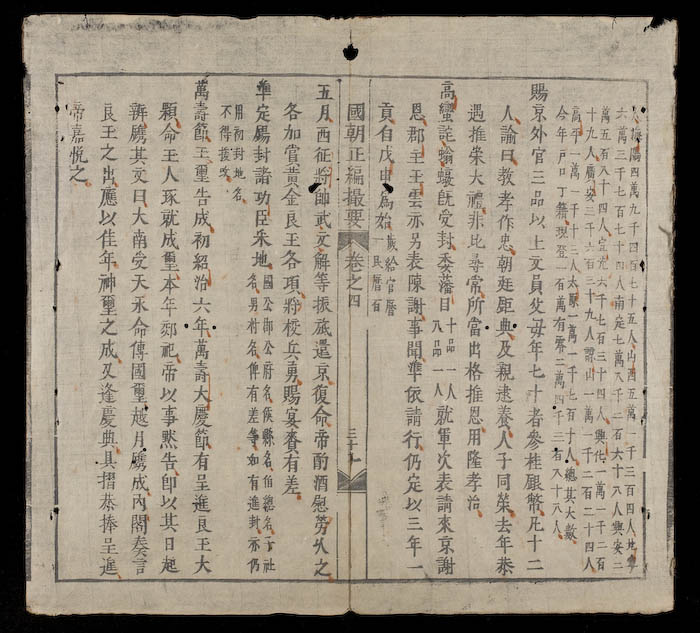 海陽四萬九千四百七十五人山西五萬一千三百四人北寧
六萬三千七百七十四人南定七萬八千二百六十八人興安二
萬五百八十四人宣光六千七百三十四人興化一萬一千二百
十九人廣安三千六百三十九人諒山一萬一千二百二十四人
高平一萬一千十二人太原一萬一千七百十人總其大數
今年戶口丁籍現登一百萬有零二萬四千三百八十八人
賜京外官三品以上文員父母年七十者參桂銀幣凡十二
人諭曰教孝作忠朝廷鉅典及親逮養人子同榮去年恭
遇推崇大禮非比尋常所當出格推恩用隆孝治
高蠻詫螉蠮既受封委藩目十品一人八品一人就軍次表請來京謝
恩郡主玉雲亦另表陳謝事聞準依請行仍定以三年一
貢自戊申為始歲給官曆一民曆百
國朝正編撮要 卷之四 三十
五月西征將帥武文解等振旅還京復命帝酌酒慰勞久之
各加賞黃金良玉各項將校兵勇賜宴賚有差
準定錫封諸功臣采地國公郡公府名侯縣名伯總名子社名男村名俾有差等如有進封亦仍用初封地名不得遞改
萬壽節玉璽告成初紹治六年萬壽大慶節有呈進良玉大
顆命玉人琢就成璽本年郊祀帝以事默告即以其日起
辨鐫其文曰大南受天永命傳國璽越月鐫成內閣奏言
良玉之出應以佳年神璽之成又逢慶典具摺恭捧呈進
帝嘉悅之